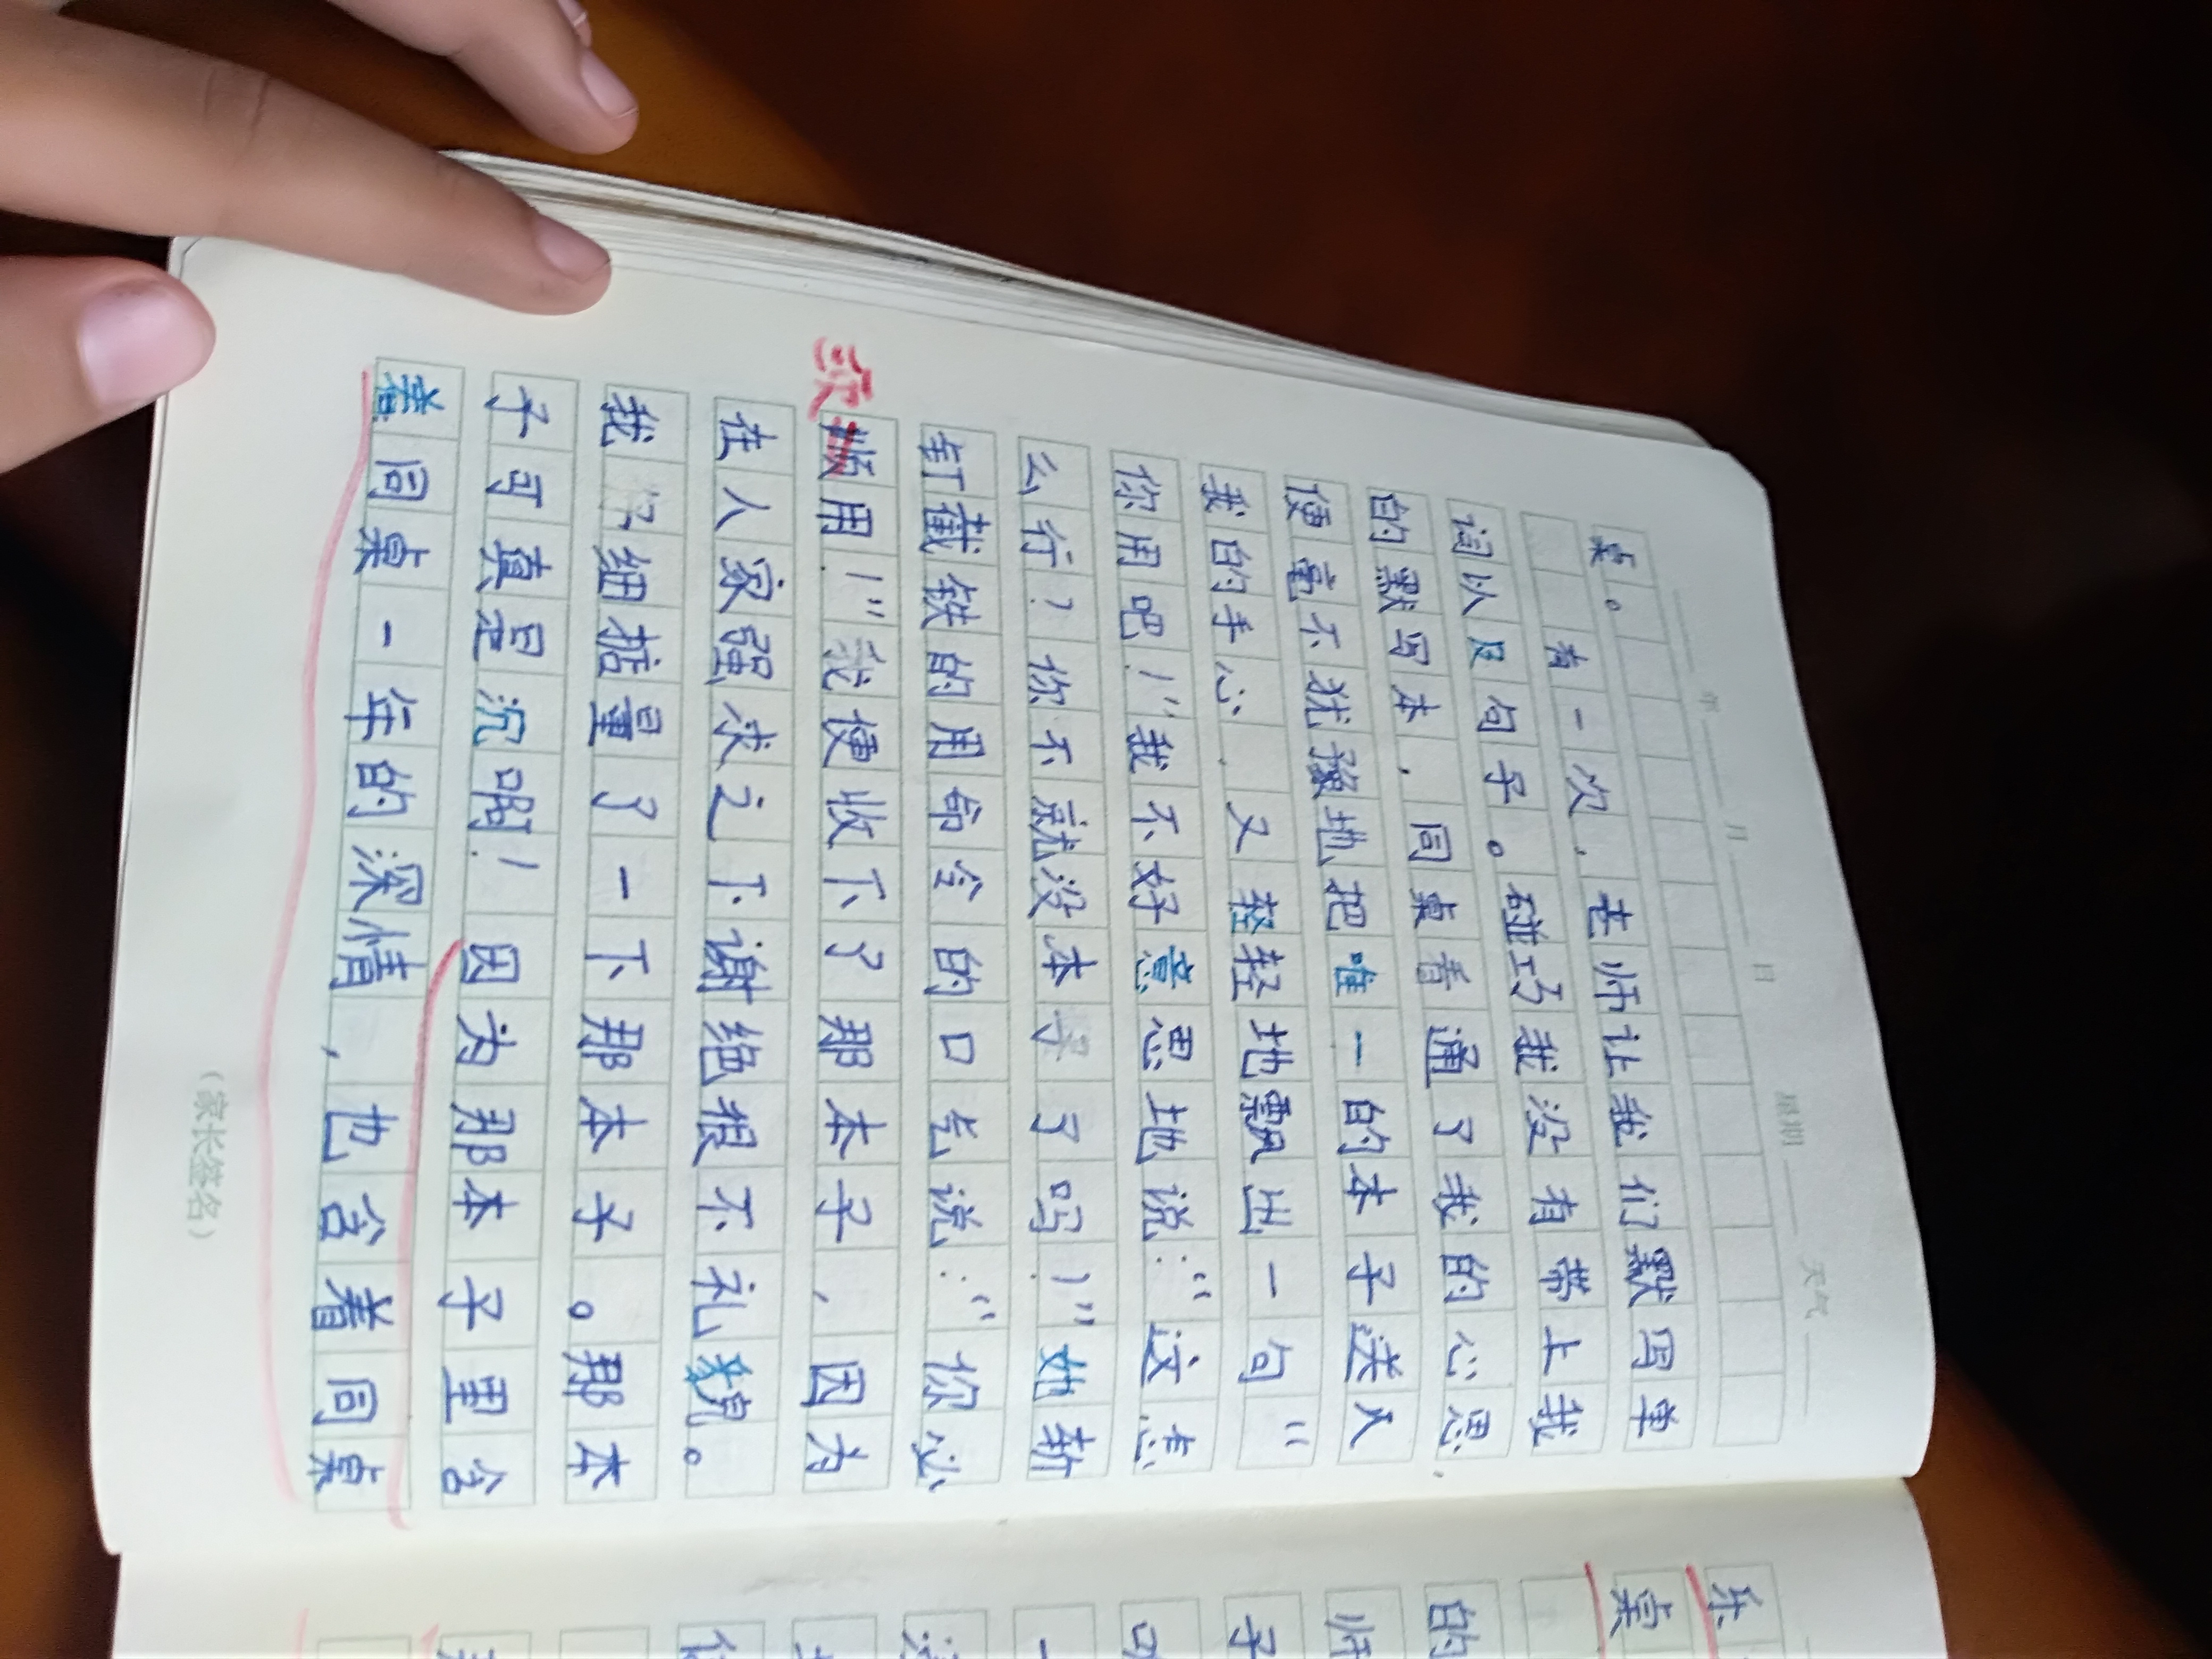 年 月 日 星期 天气
桌。
有一次,老师让我们默写单
词以及句子。碰巧我没有带上我
的默写本,同桌看通了我的心思,
便毫不犹豫地把唯一的本子送入
我的手心,又轻轻地飘出一句“
你用吧!”我不好意思地说:“这怎
么行?你不就没本子了吗!”她斩
钉截铁的用命令的口气说:“你必
须用!”我便收下了那本子,因为
在人家强求之下谢绝很不礼貌。
我仔细掂量了一下那本子。那本
子可真是沉啊!因为那本子里含
着同桌一年的深情,也含着同桌
(家长签名)
乐
桌
的
师
子